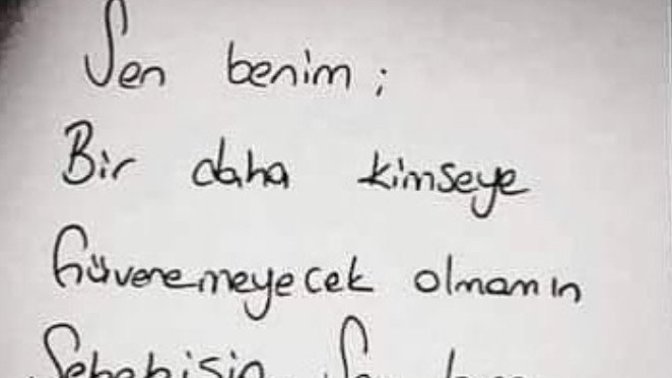 Sen benim ;
Bir daha kimseye
Güvenemeyecek olmamın
Sebebisin